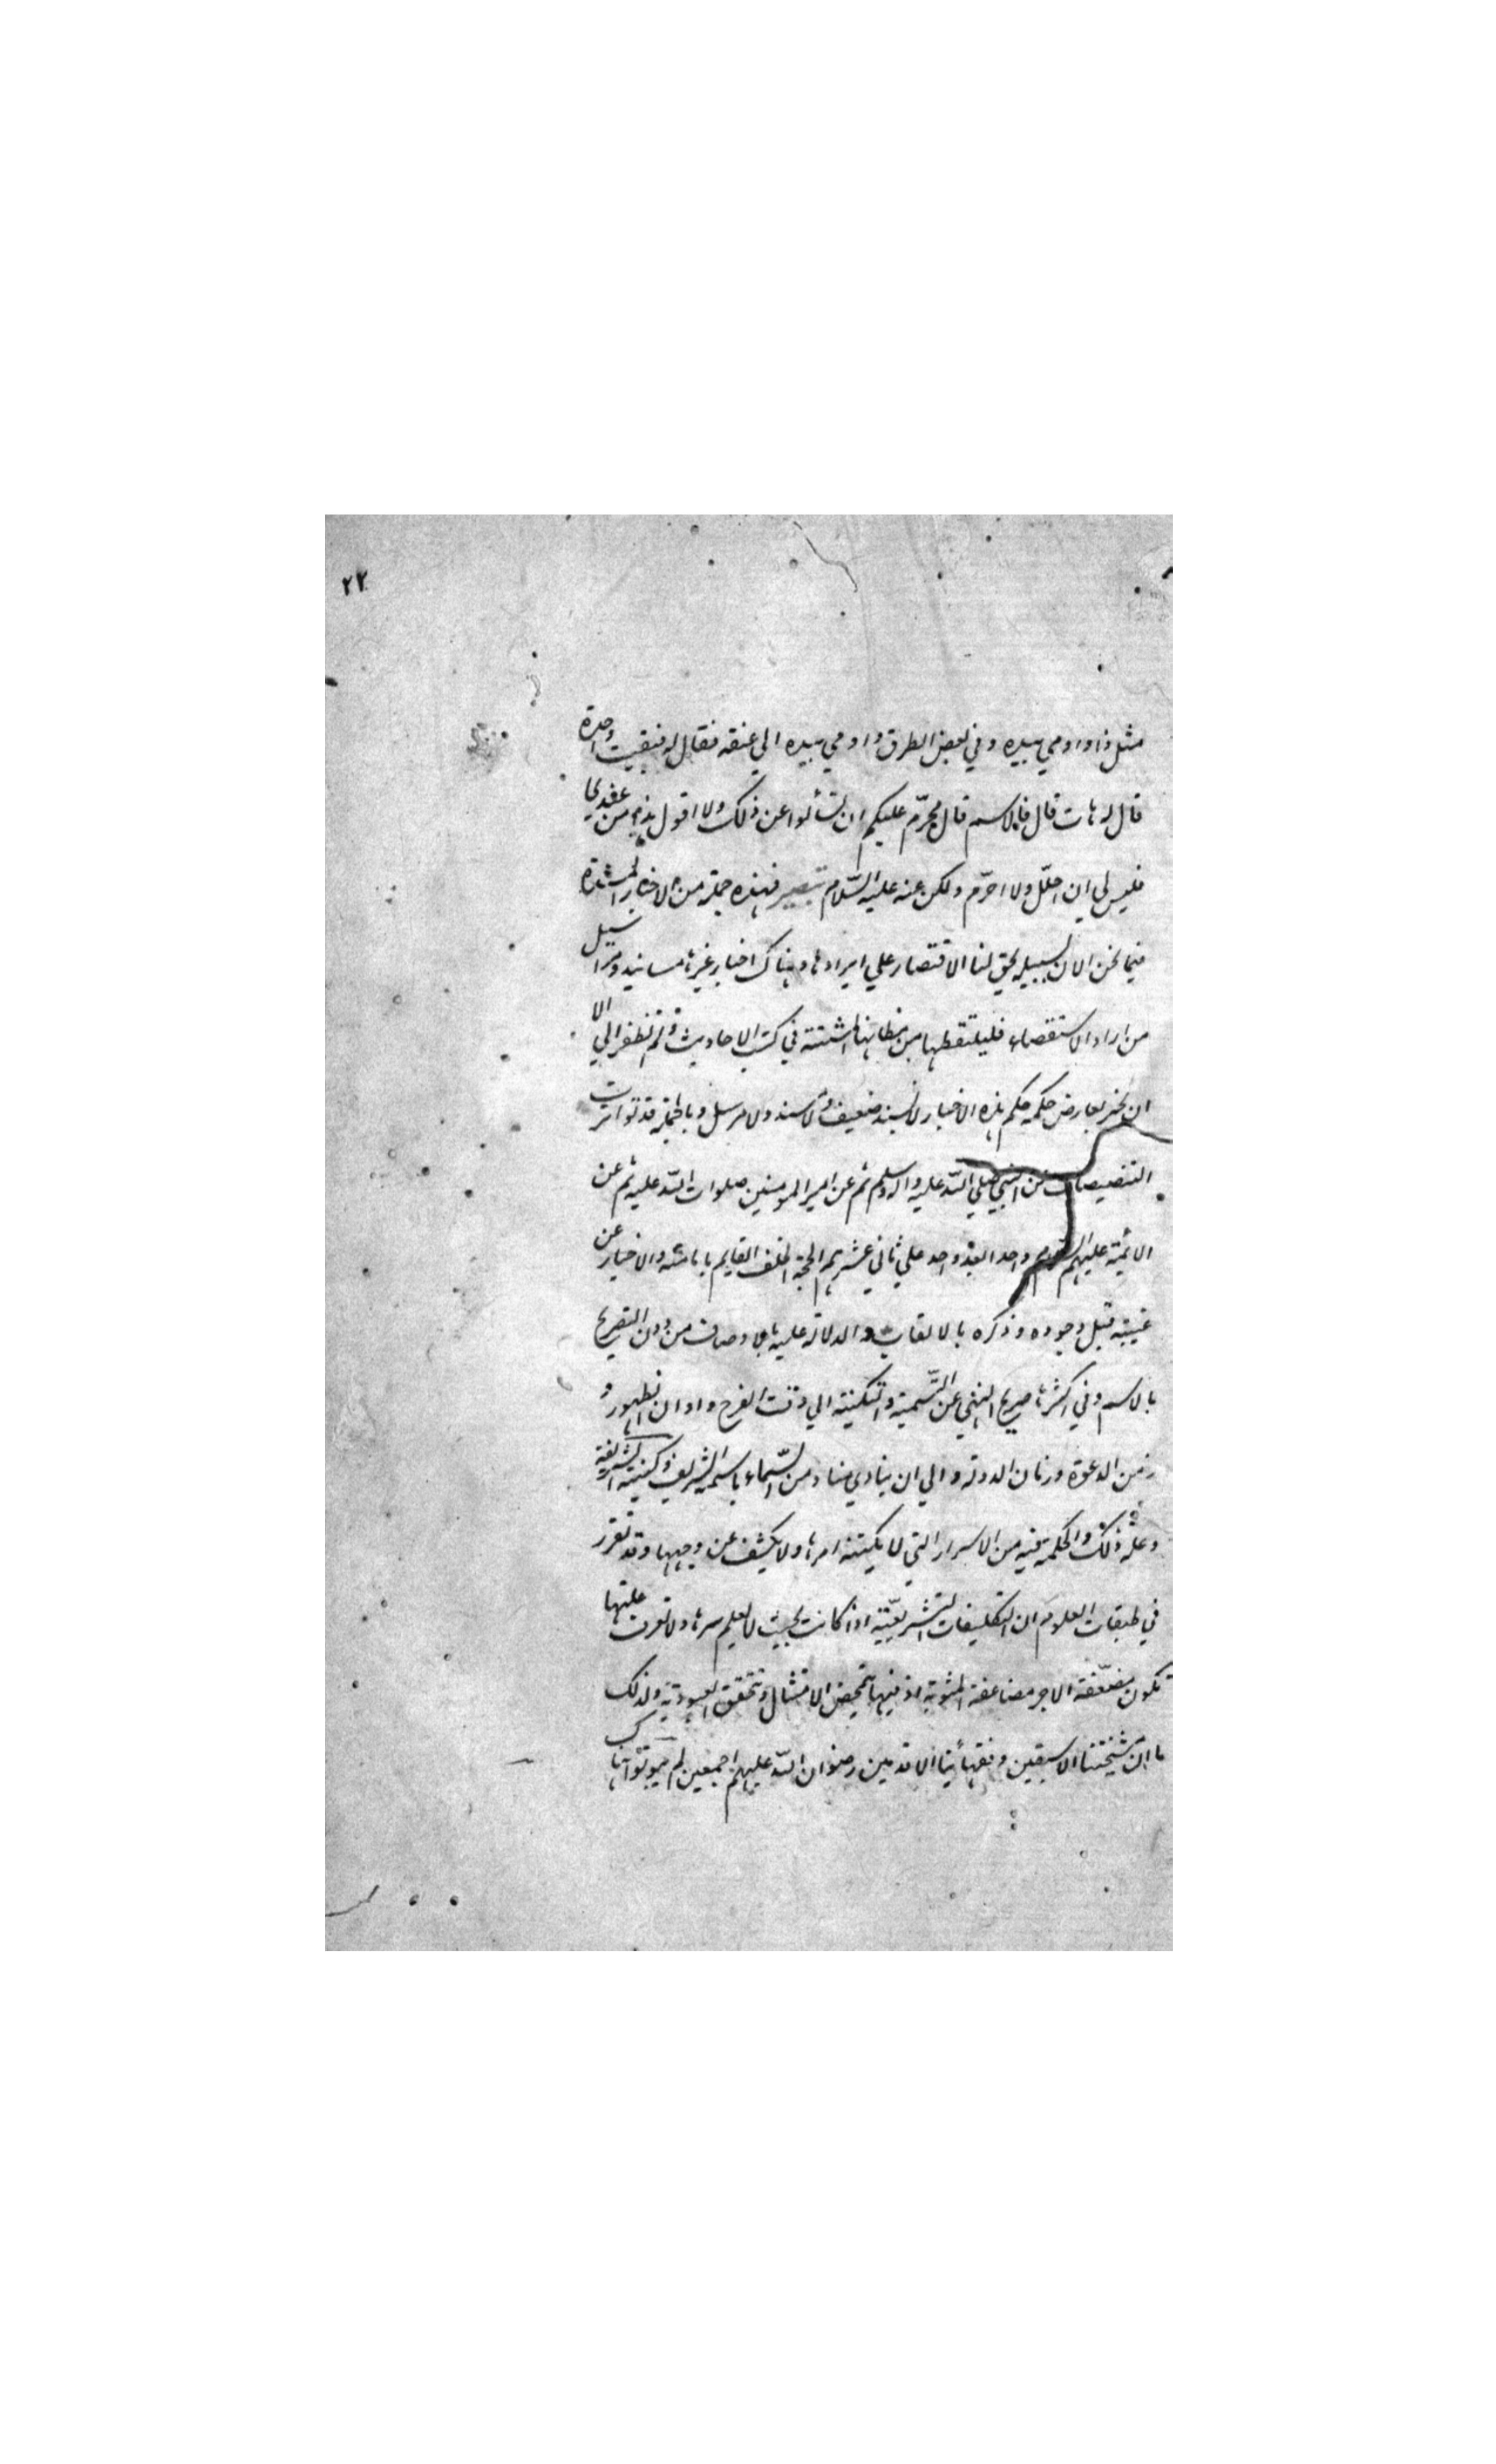 ٢٢
مثل ذا واومي بيده وفي بعض الطرق واومي بيده الي عنقه فقال له فبقيت واحدة
قال له هات قال فالاسم قال محرّم عليكم ان تسألوا عن ذلك ولا اقول هذا من عندي
فليس لي ان احلّل ولا احرّم ولكن عنه عليه السّلام تبصير فهذه جملة من الاخبار
فيما نحن الان لسبيله يحق لنا الاقتصار علي ايرادها وهناك اخبار غيرها مسانيد ومراسيل
من اراد الاستقصاء فليلتقطها من مظانها المشتتة في كتب الاحاديث ولم نظفر الي الا
ان بخبر يعارض حكمه حكم هذه الاخبار لا بسند ضعيف ولا سند ولا مرسل وبالجملة قد تواترت
التنصيصات من النبي صلي اللّه عليه واله وسلم ثم عن امير المومنين صلوات اللّه عليه ثم عن
الائمة عليهم السلام واحد بعد واحد علي ثاني عشرهم الحجة الخلف القايم بالامامة والاخبار عن
غيبته قبل وجوده وذكره بالالقاب والدلالة عليه بالاوصاف من دون التصريح
بالاسم وفي اكثرها صريح النهي عن التّسمية والتكنية الي وقت الفرج واوان الظهور و
زمن الدعوة وزمان الدولة والي ان ينادي مناد من السّماء باسمه الشريف وكنيته الشريفة
وعلة ذلك والحكمة فيه من الاسرار التي لا يكتنه امرها ولا يكشف عن وجهها وقد تقرر
في طبقات العلوم ان التكليفات التشريعيّة اذا كانت بحيث لا يعلم سرها ولا تعرف علتها
تكون مضعّفة الاجر مضاعفة المثوبة اذ فيها تمحيض الامتثال وتحقق العبودية ولذلك
ما انّ مشيختنا الاسبقين وفقهاءنا الاقدمين رضوان اللّه عليهم اجمعين لم